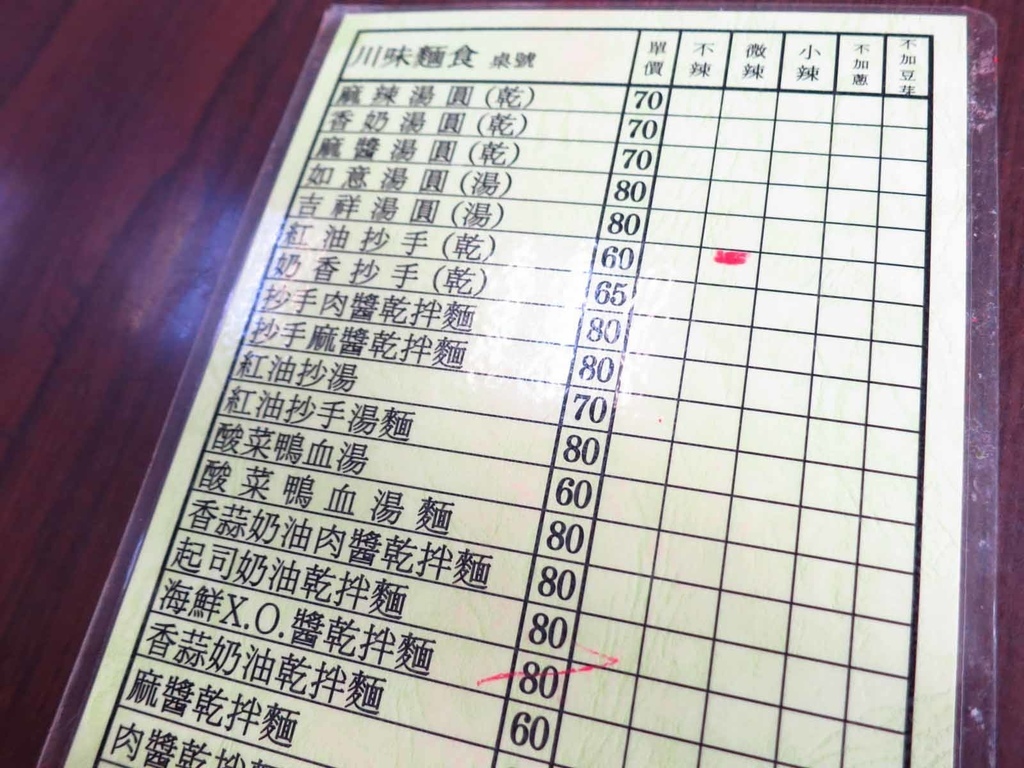 川味麵食 桌號 單價 不辣 微辣 小辣 不加蔥 不加豆芽
麻辣湯圓(乾) 70
香奶湯圓(乾) 70
麻醬湯圓(乾) 70
如意湯圓(湯) 80
吉祥湯圓(湯) 80
紅油抄手(乾) 60
奶香抄手(乾) 65
抄手肉醬乾拌麵 80
抄手麻醬乾拌麵 80
紅油抄湯 70
紅油抄手湯麵 80
酸菜鴨血湯 60
酸菜鴨血湯麵 80
香蒜奶油肉醬乾拌麵 80
起司奶油乾拌麵 80
海鮮X.O.醬乾拌麵 80
香蒜奶油乾拌麵 60
麻醬乾拌麵
肉醬乾拌麵